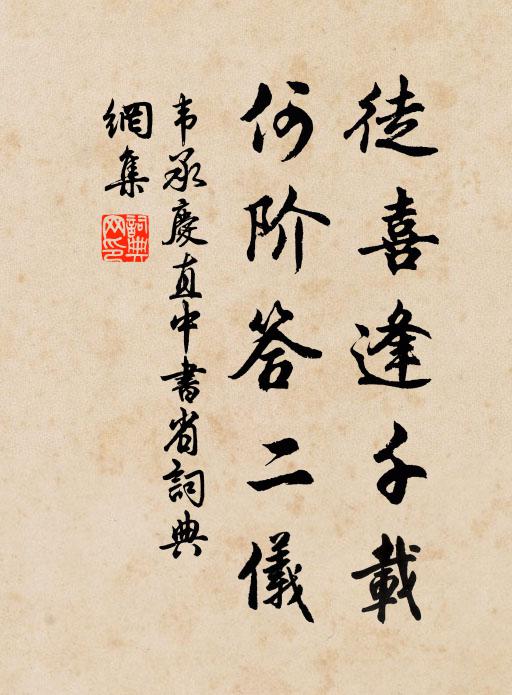 徒喜逢千載
何阶答二儀
韦承慶直中書省詞典
網集
詞典网印